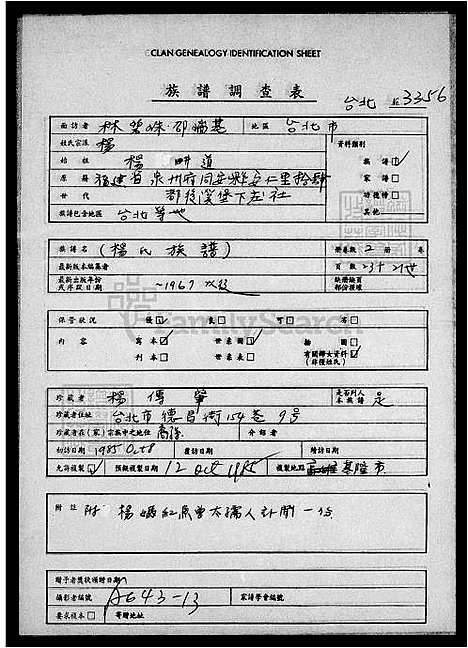 CLAN GENEALOGY IDENTIFICATION SHEET
族譜調查表
台北 3356
面訪者 林碧珠·邵端基 地區 台北市
姓氏宗派 楊 資料類別
始祖 楊畊道 族譜☑
原籍 福建省泉州府同安縣安仁里拾肆 家譜□
世代 都後溪堡下庄社 功德簿□
族譜包含地區 台北等地 其他
族譜名 (楊氏族譜) 冊卷數 2 冊 卷
最新版本編纂者 頁數 23+21
最新出版年份或序跋日期 ~1967
保管狀況 優☑ 良□ 可□ 劣□
內容 寫本☑ 世系圖☑ 插圖□
刊本□ 世系表□ 有關婦女資料☑
珍藏者 楊傳肇 是否列入本族譜 是
珍藏者住址 台北市德昌街154巷9号
珍藏者在(家)宗族中之地位 裔孫 分部者
初訪日期 1985 Oct 8 覆訪日期 續訪日期
允許複製☑ 預擬複製日期 12 Oct 1985 複製地點 基隆市
附註 附 楊媽紅魚曾太孺人訃聞一份
贈予者獎狀頒贈日期
攝影者編號 A643-13 家譜學會編號
要求複本□ 寄贈地址
FamilySearch